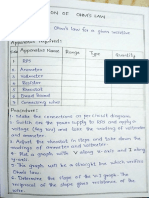 ION OF OHM'S LAW
Ohm's law for a given resistor
Apparatus required:
Apparatus Name Range Type Quantity
1 RPS
2. Ammeter
3 Voltmeter
4 Resistor
5 Rheostat
6 Bread Board
7 Connecting wire
Procedure:
1. Make the connections as per circuit diagram.
2. Switch on the power supply to RPS and apply a
voltage (say 10V) and take the reading of voltmeter
and ammeter.
3. Adjust the rheostat in steps and take down the
readings of ammeter and voltmeter.
4. Plot a graph with V along x-axis and I along
y-axis.
5. The graph will be a straight line which verifies
Ohm's law.
6. Determine the slope of the V-I graph. The
reciprocal of the slope gives resistance of the
wire.